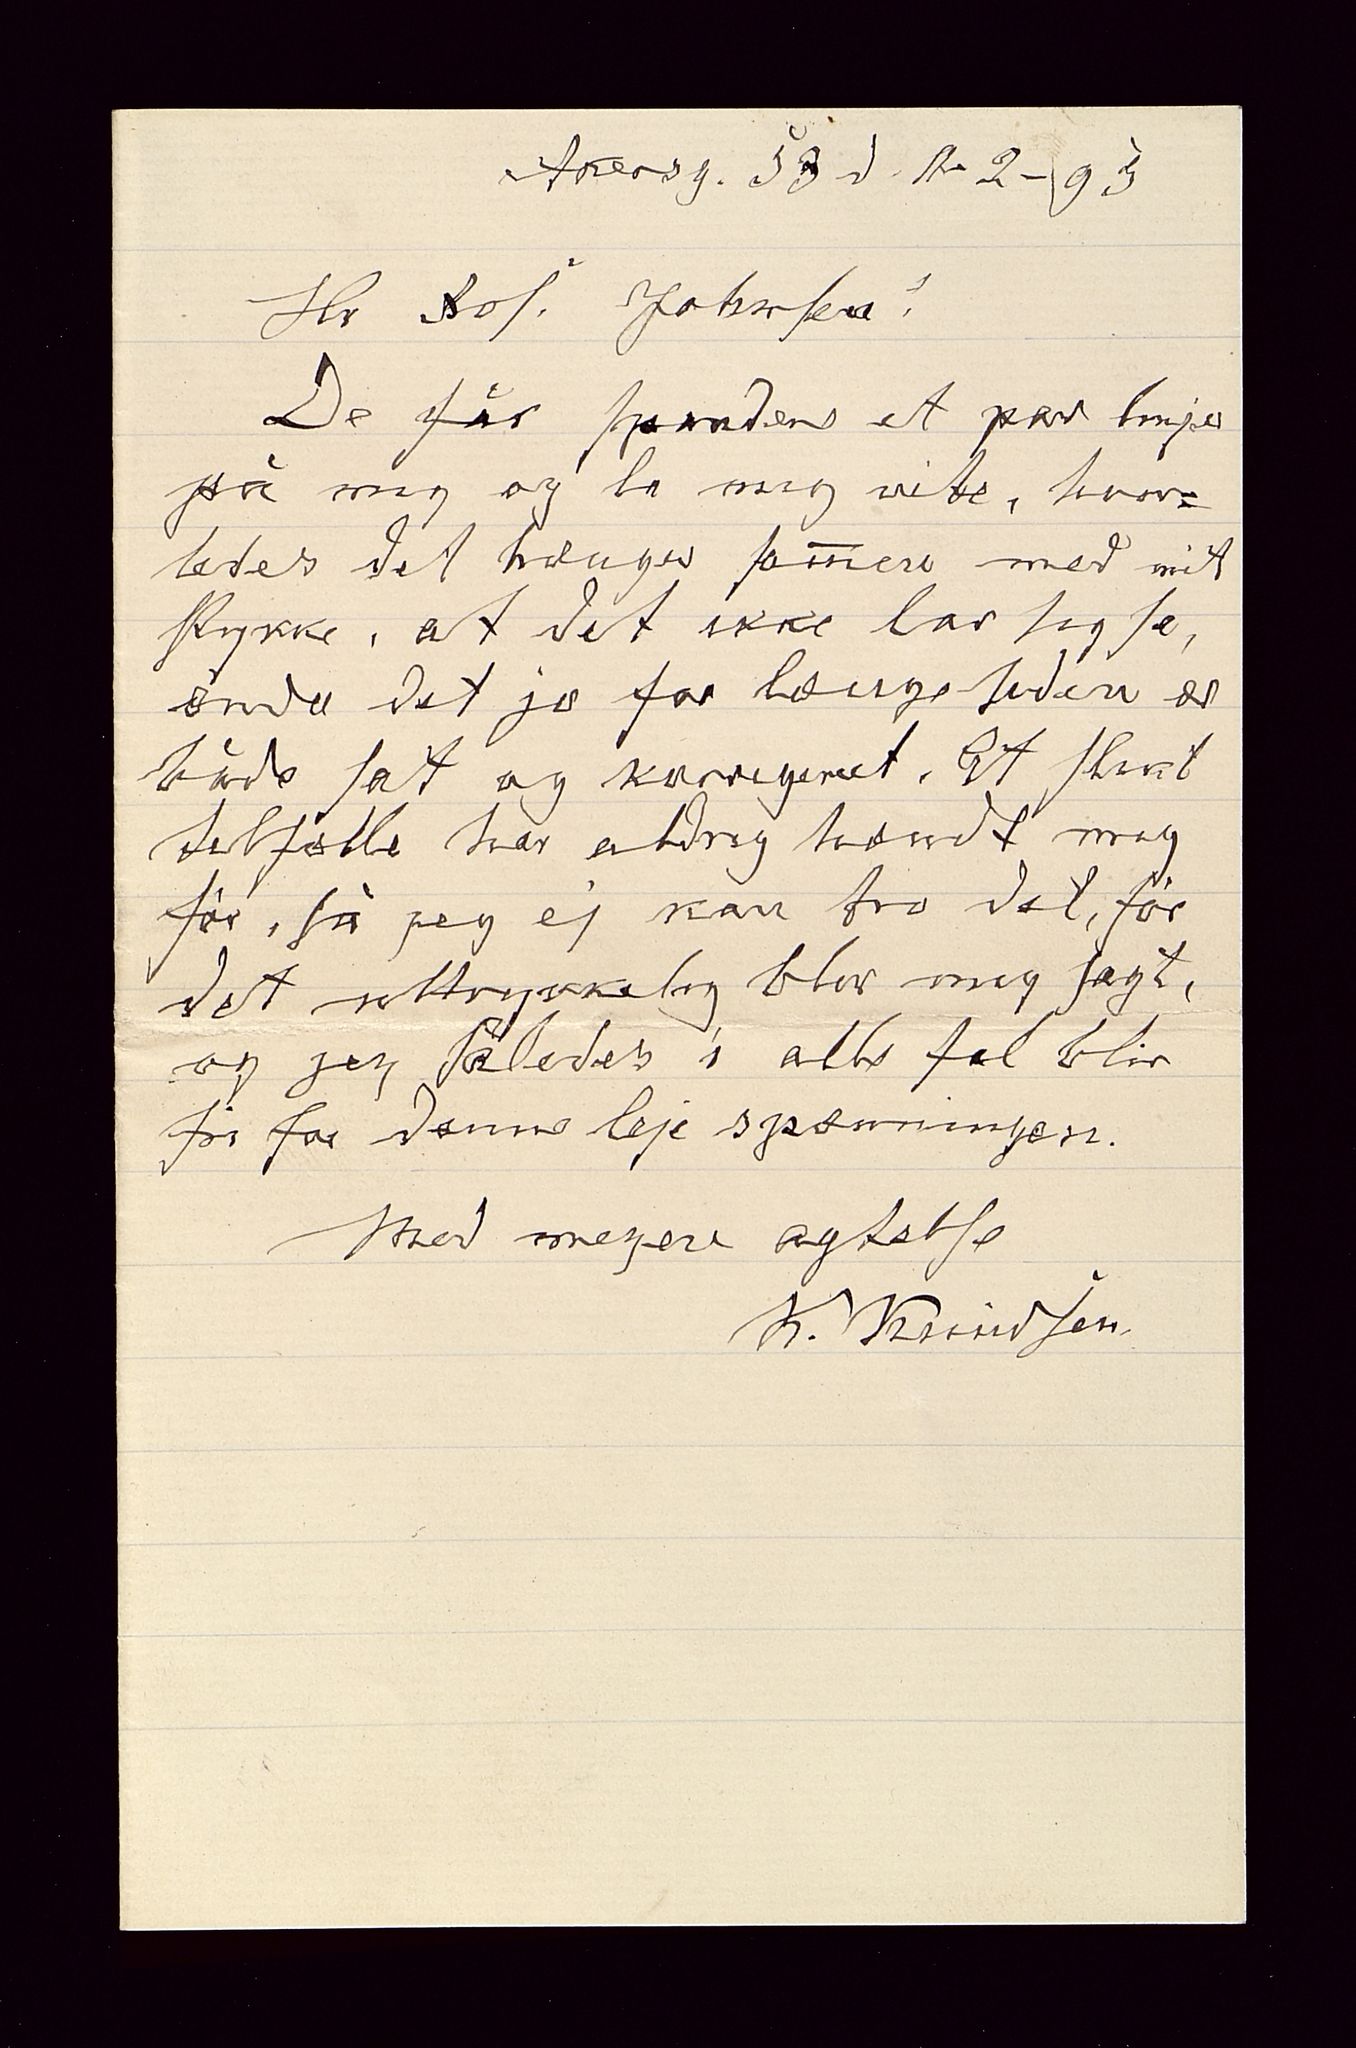 Akersg. 53 d. 12-2-93
Hr Kos. Johnsen!
De får spandere et par linjer
på mig og la mig vite, hvor=
ledes det hænger sam̅en med mit
stykke, at det ikke lar sig se,
ænda det jo for længe siden er
både sat og korrigeret. Et slikt
tilfælle har aldrig hændt mig
för, så jeg ej kan tro det, för
det uttrykkelig blir mig sagt,
og jeg således i alle fal blir
fri for denne leje spænningen.
Med megen agtelse
K. Knudsen.